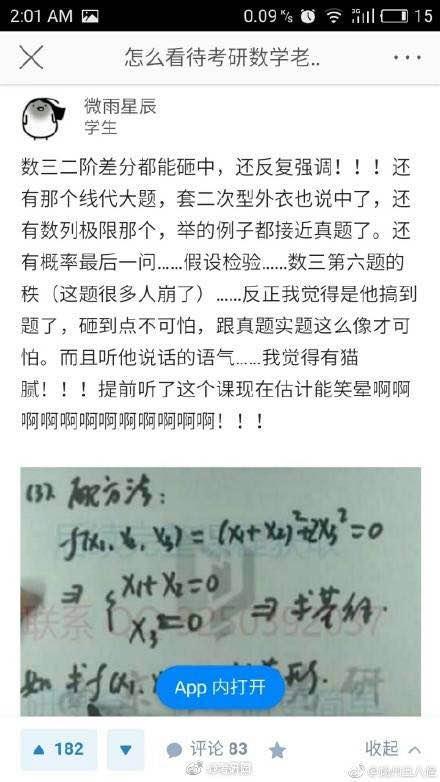 2:01 AM 0.09 K/s 15
怎么看待考研数学老..
微雨星辰
学生
数三二阶差分都能砸中，还反复强调！！！还
有那个线代大题，套二次型外衣也说中了，还
有数列极限那个，举的例子都接近真题了。还
有概率最后一问......假设检验......数三第六题的
秩（这题很多人崩了）......反正我觉得是他搞到
题了，砸到点不可怕，跟真题实题这么像才可
怕。而且听他说话的语气......我觉得有猫
腻！！！提前听了这个课现在估计能笑晕啊啊
啊啊啊啊啊啊啊啊啊啊！！！
(3). 配方法:
f(x₁, x₂, x₃) = (x₁+x₂)²+2x₃² = 0
⇒ { x₁+x₂=0
x₃=0 ⇒ 求基础
联系 QQ
App 内打开
182 评论 83 收起
@考研园